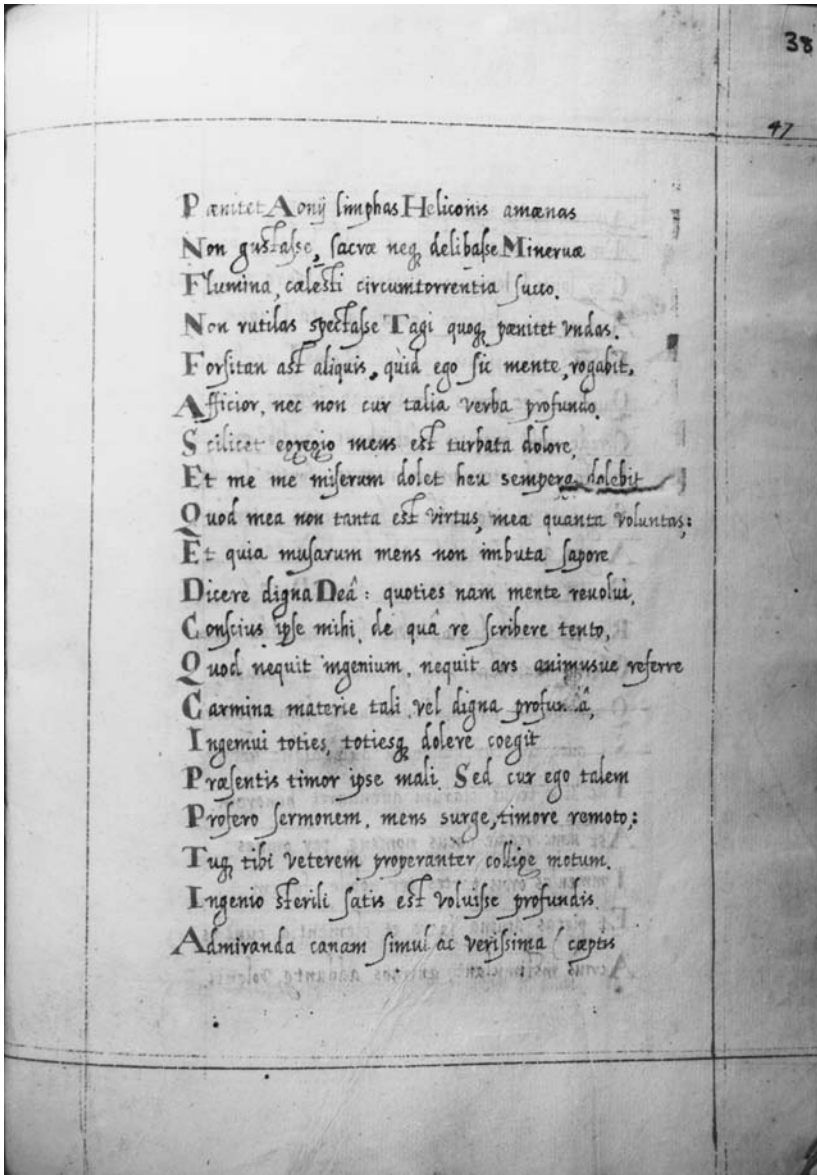 38
47
Pænitet Aonij limphas Heliconis amœnas
Non gustasse, sacræ neq; delibasse Mineruæ
Flumina, cælesti circumtorrentia succo.
Non rutilas spectasse Tagi quoq; pænitet vndas.
Forsitan ast aliquis, quid ego sic mente, rogabit,
Afficior, nec non cur talia verba profundo.
Scilicet egregio mens est turbata dolore,
Et me me miserum dolet heu semperq; dolebit
Quod mea non tanta est virtus, mea quanta voluntas:
Et quia musarum mens non imbuta sapore
Dicere digna Deâ: quoties nam mente reuolui,
Conscius ipse mihi, de quâ re scribere tento,
Quod nequit ingenium, nequit ars animusùe referre
Carmina materie tali, vel digna
Ingemui toties, totiesq; dolere coegit
Præsentis timor ipse mali. Sed cur ego talem
Profero sermonem, mens surge, timore remoto;
Tuq; tibi veterem properanter collige motum.
Ingenio sterili satis est voluisse profundis.
Admiranda canam simul ac verissima (cæptis